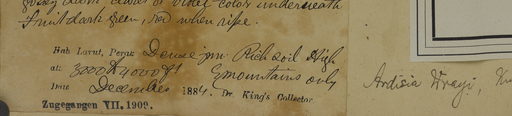 glossy dark above or vitae color underneath
Fruit dark green, red when ripe.
Hab Larut, Perak Dense jun. Rich soil High
alt 3000 to 4000 ft mountains only
Date December 1884. Dr. King's Collector
Zugegangen VII. 1909.
Ardisia Wrayi,